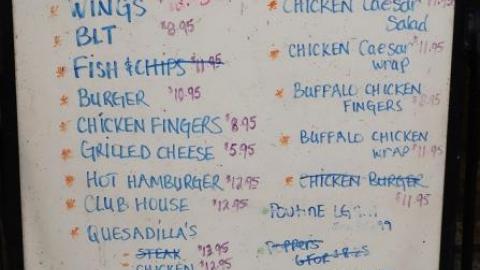 WINGS
BLT $8.95
FISH & CHIPS $11.95
BURGER $10.95
CHICKEN FINGERS $8.95
GRILLED CHEESE $5.95
HOT HAMBURGER $12.95
CLUB HOUSE $12.95
QUESADILLA'S
STEAK $13.95
CHICKEN $12.95
CHICKEN Caesar $11.95
Salad
CHICKEN Caesar $11.95
wrap
BUFFALO CHICKEN
FINGERS $8.95
BUFFALO CHICKEN
WRAP $11.95
CHICKEN BURGER
$11.95
POUTINE LG
POPPERS
6 FOR $8.25